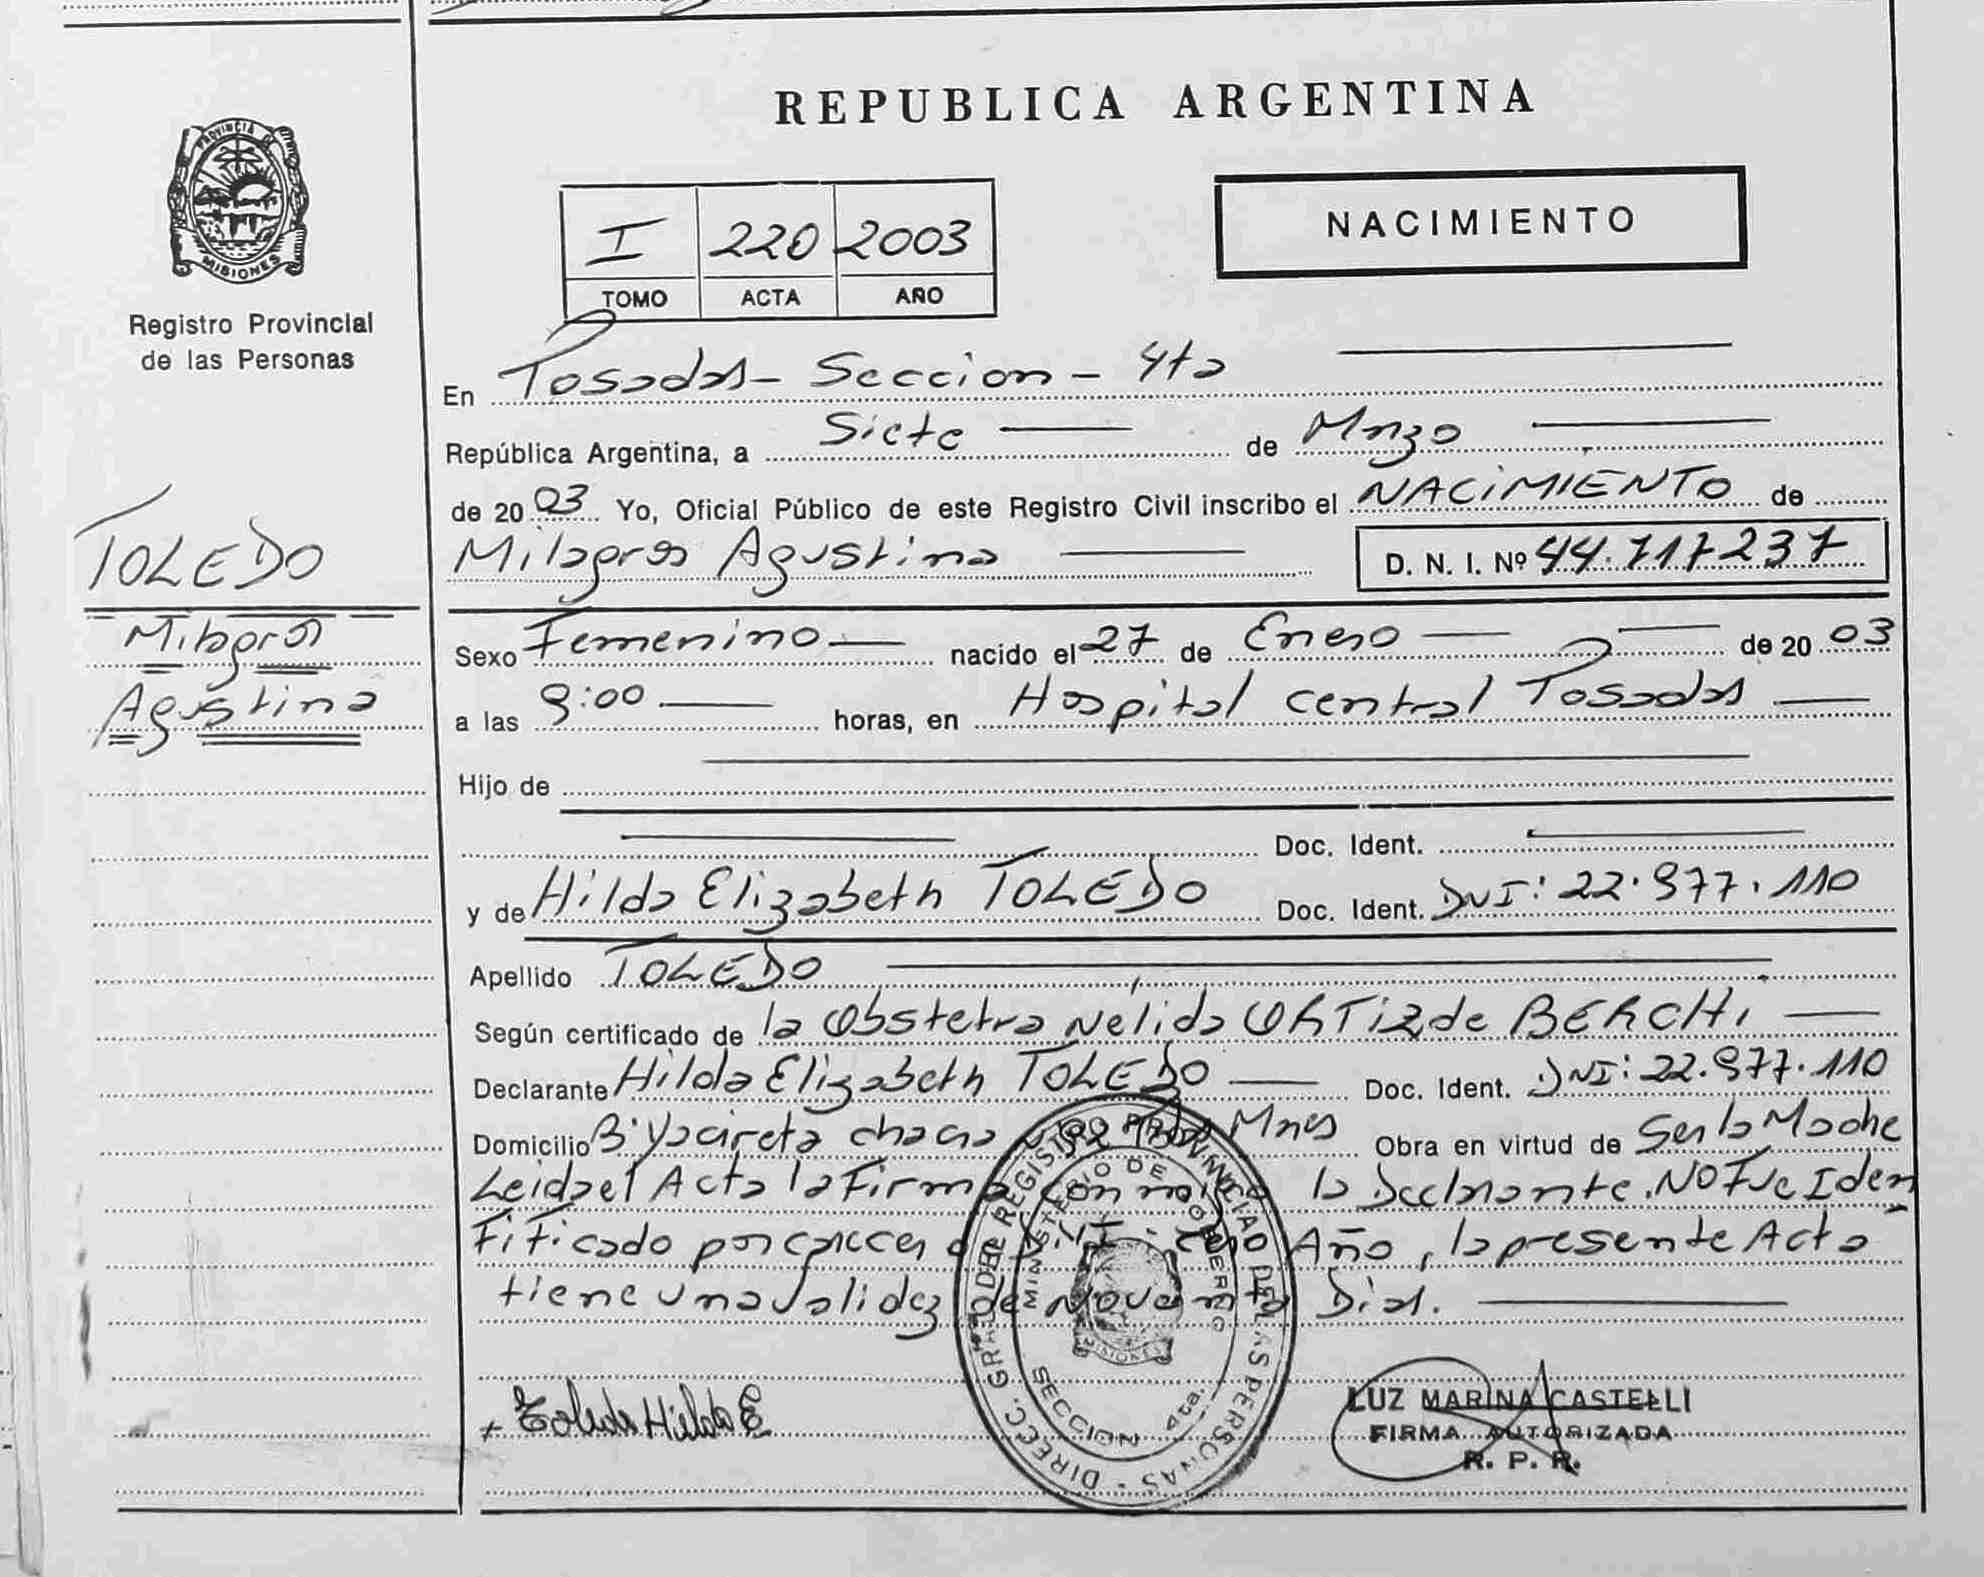 REPUBLICA ARGENTINA
PROVINCIA DE
MISIONES
Registro Provincial
de las Personas
I 220 2003
TOMO ACTA AÑO
NACIMIENTO
En Posadas - Seccion - 4ta
República Argentina, a Siete de Marzo
de 2003 Yo, Oficial Público de este Registro Civil inscribo el NACIMIENTO de
Milagros Agustina D. N. I. Nº 44.717237
TOLEDO
Milagros
Agustina
Sexo Femenino nacido el 27 de Enero de 20 03
a las 9:00 horas, en Hospital Central Posadas
Hijo de
Doc. Ident.
y de Hilda Elizabeth TOLEDO Doc. Ident. DNI: 22.977.110
Apellido TOLEDO
Según certificado de la Obstetra Nélida ORTIZ de BERCHI
Declarante Hilda Elizabeth TOLEDO Doc. Ident. DNI: 22.977.110
Domicilio B° Yacireta chacra Mnes Obra en virtud de Ser la Madre
Leida el Acta la Firma Conmigo la Declarante. NO Fue Iden
tificado por carecer de D.N.I. Cero Año, la presente Acta
tiene una validez de Noventa Dias.
DIRECC. GRAL. DEL REGISTRO PROVINCIAL DE LAS PERSONAS
MINISTERIO DE GOBIERNO
MISIONES
SECCION 4ta.
Toledo Hilda E
LUZ MARINA CASTELLI
FIRMA AUTORIZADA
R. P. P.